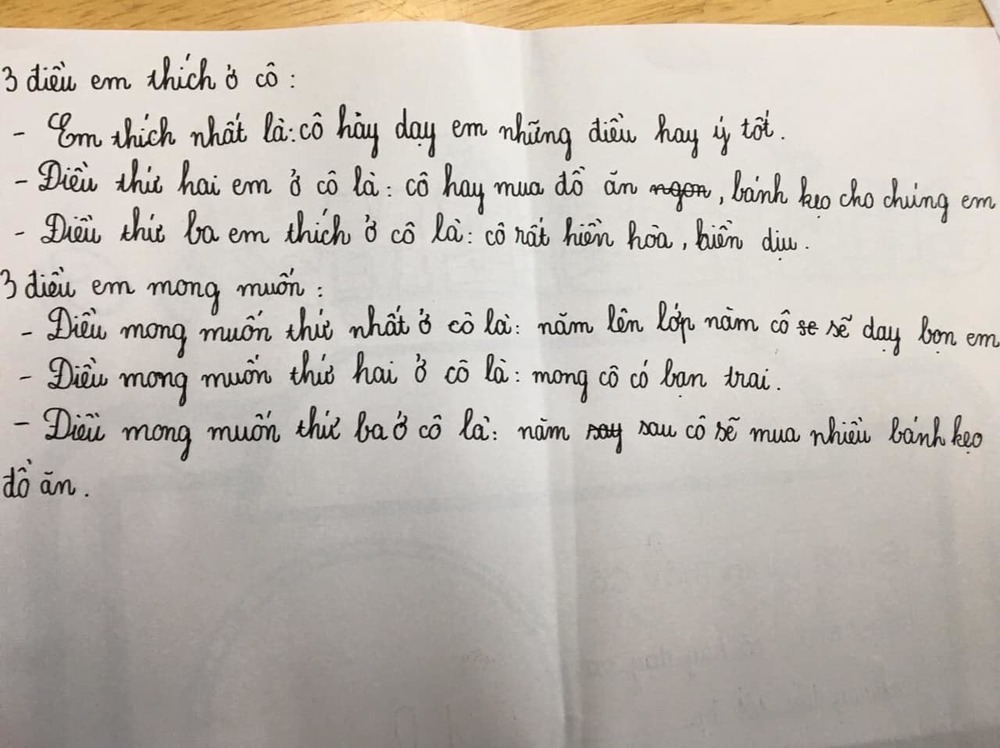 3 điều em thích ở cô:
- Em thích nhất là: cô hãy dạy em những điều hay ý tốt.
- Điều thứ hai em ở cô là: cô hay mua đồ ăn ngon, bánh kẹo cho chúng em
- Điều thứ ba em thích ở cô là: cô rất hiền hòa, hiền dịu.
3 điều em mong muốn:
- Điều mong muốn thứ nhất ở cô là: năm lên lớp năm cô se sẽ dạy bọn em
- Điều mong muốn thứ hai ở cô là: mong cô có bạn trai.
- Điều mong muốn thứ ba ở cô là: năm say sau cô sẽ mua nhiều bánh kẹo
đồ ăn.